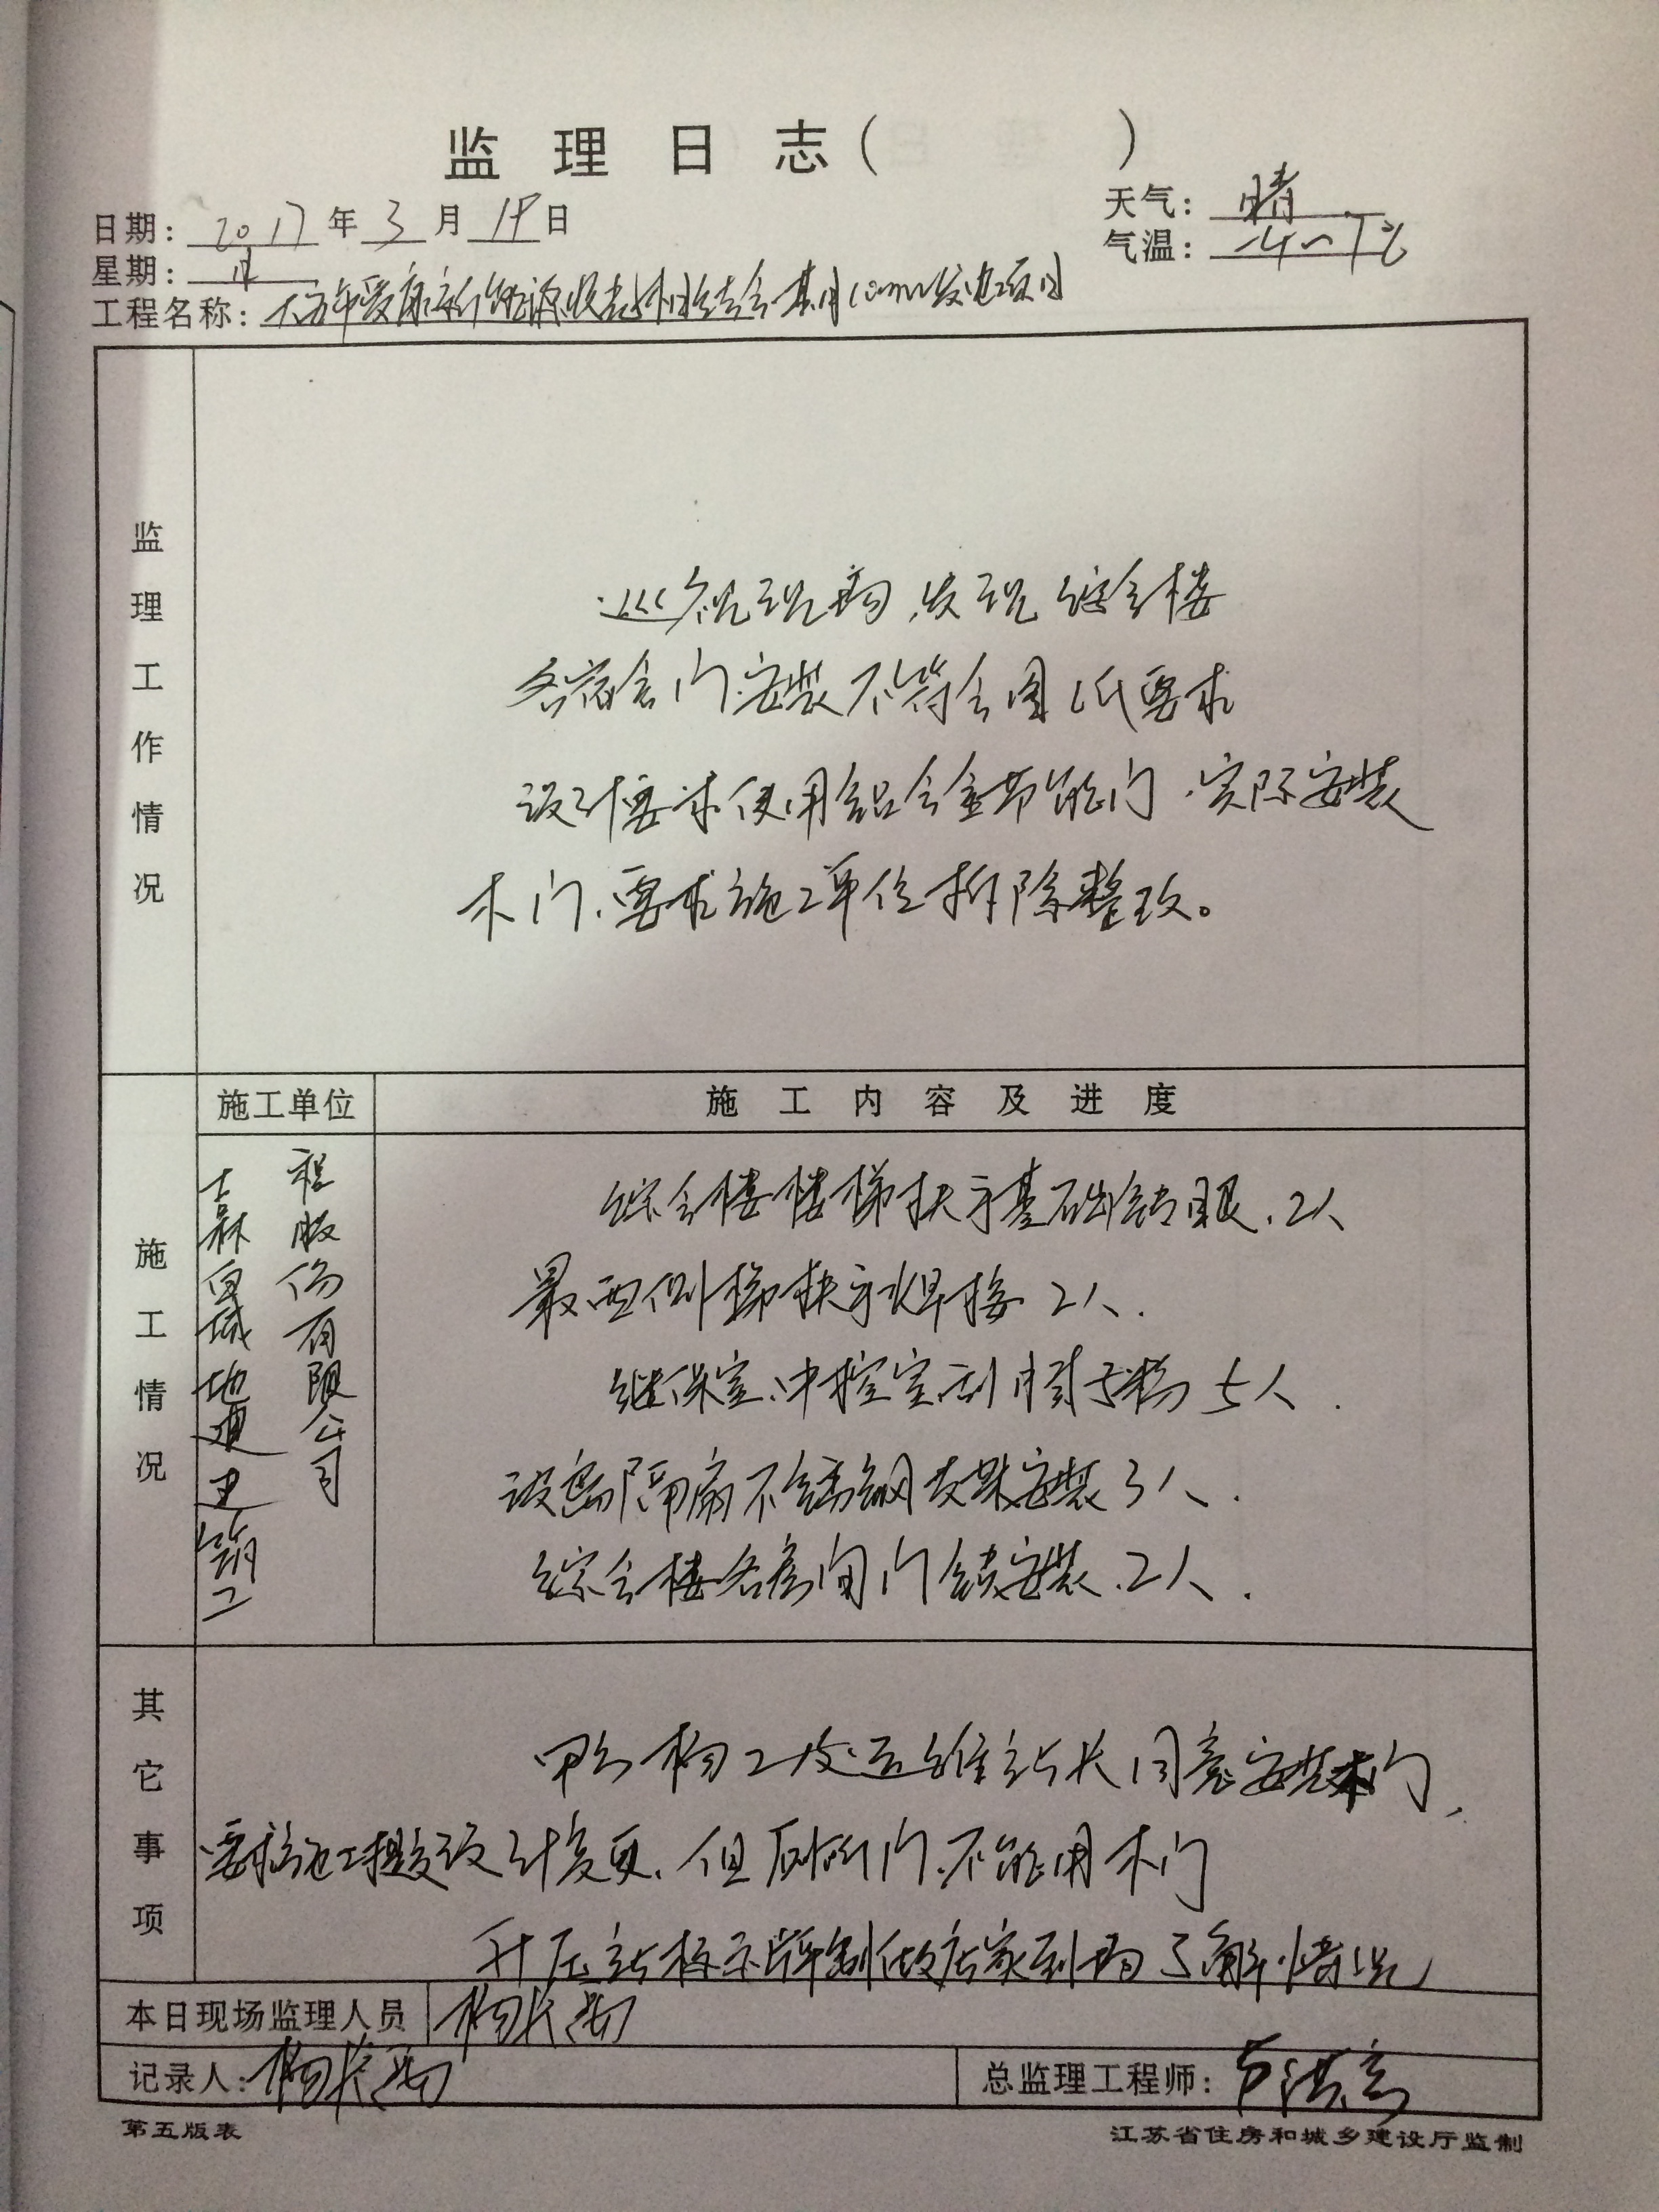 监理日志（ ）
日期：2017年3月19日
天气：晴
星期：日
气温：-4～7℃
工程名称：爱康新能源 结合 发电项目
监理工作情况
巡视现场，发现综合楼
各宿舍门安装不符合图纸要求
设计要求使用铝合金节能门，实际安装
木门，要求施工单位拆除整改。
施工单位
施工内容及进度
施工情况
嘉城地建建筑工
程股份有限公司
综合楼楼梯扶手基础钻眼，2人
最西侧梯扶手焊接2人．
继保室、中控室刮腻子粉5人．
隔扇不锈钢支架安装3人．
综合楼各房间门锁安装，2人．
其它事项
甲方杨工及运维站长同意安装木门，
要求施工提交设计变更，但厕所门不能用木门
升压站标示牌制做店家到场了解情况
本日现场监理人员
杨长
记录人：杨长
总监理工程师：
第五版表
江苏省住房和城乡建设厅监制